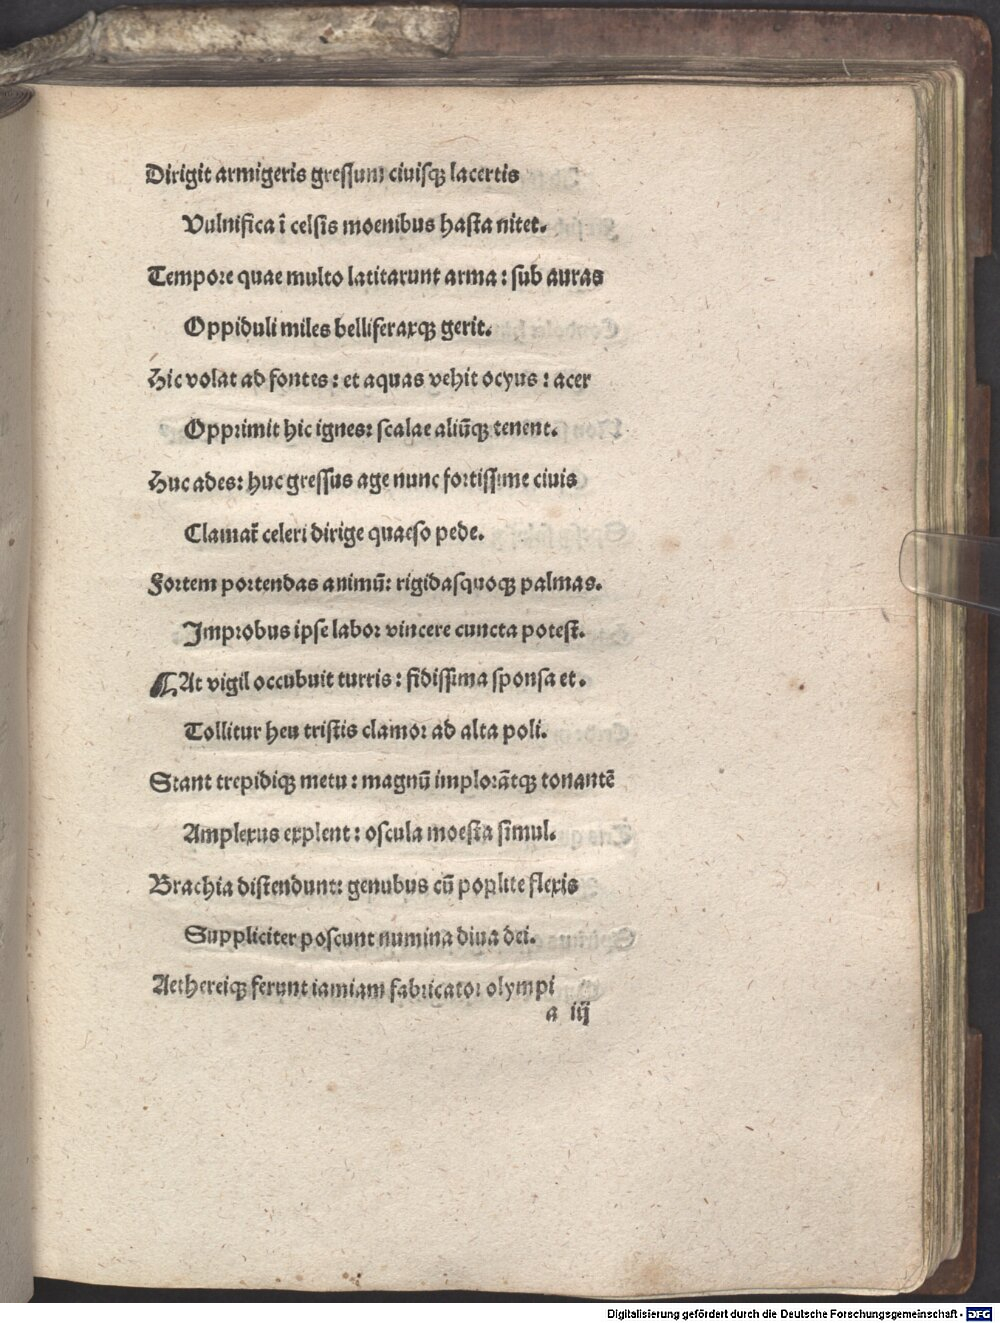 Dirigit armigeris gressum ciuisqꝫ lacertis
Vulnifica ī celsis moenibus hasta nitet.
Tempore quae multo latitarunt arma : sub auras
Oppiduli miles belliferaxqꝫ gerit.
Hic volat ad fontes : et aquas vehit ocyus : acer
Opprimit hic ignes: scalae aliūqꝫ tenent.
Huc ades: huc gressus age nunc fortissime ciuis
Clamat̄ celeri dirige quaeso pede.
Fortem portendas animū: rigidasquoqꝫ palmas.
Improbus ipse labor vincere cuncta potest.
¶At vigil occubuit turris : fidissima sponsa et .
Tollitur heu tristis clamor ad alta poli.
Stant trepidiqꝫ metu : magnū implorātqꝫ tonantē
Amplexus explent : oscula moesta simul.
Brachia distendunt: genubus cū poplite flexis
Suppliciter poscunt numina diua dei.
Aethereiqꝫ ferunt iamiam fabricator olympi
a iij
Digitalisierung gefördert durch die Deutsche Forschungsgemeinschaft - DFG